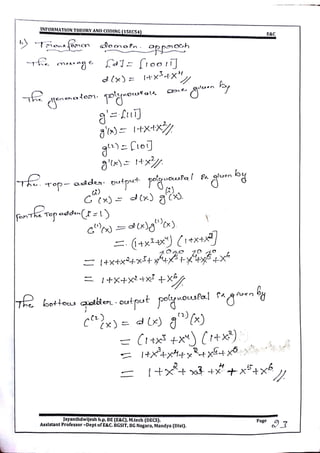 INFORMATION THEORY AND CODING (15EC54) E&C
b.) Transform domain approach
The message [d] = [10011]
d(x) = 1+x³+x⁴//
The generator polynomial are given by
g' = [111]
g'(x) = 1+x+x²//
g⁽²⁾ = [101]
g'(x) = 1+x²//
The Top-adder output polynomial is given by
C⁽ʲ⁾(x) = d(x) g⁽ʲ⁾(x)
for the Top adder (j=1)
C⁽¹⁾(x) = d(x) g⁽¹⁾(x)
= (1+x³+x⁴) (1+x+x²)
= 1+x+x²+x³+x⁴+x⁵+x⁴+x⁵+x⁶
= 1+x+x²+x³+x⁶//
The bottom adder output polynomial is given by
C⁽²⁾(x) = d(x) g⁽²⁾(x)
= (1+x³+x⁴) (1+x²)
= 1+x³+x⁴+x²+x⁵+x⁶
= 1+x²+x³+x⁴+x⁵+x⁶//
Jayanthdwijesh h.p. BE (E&C), M.tech (DECS). Page 23
Assistant Professor -Dept of E&C. BGSIT, BG Nagara, Mandya (Dist).